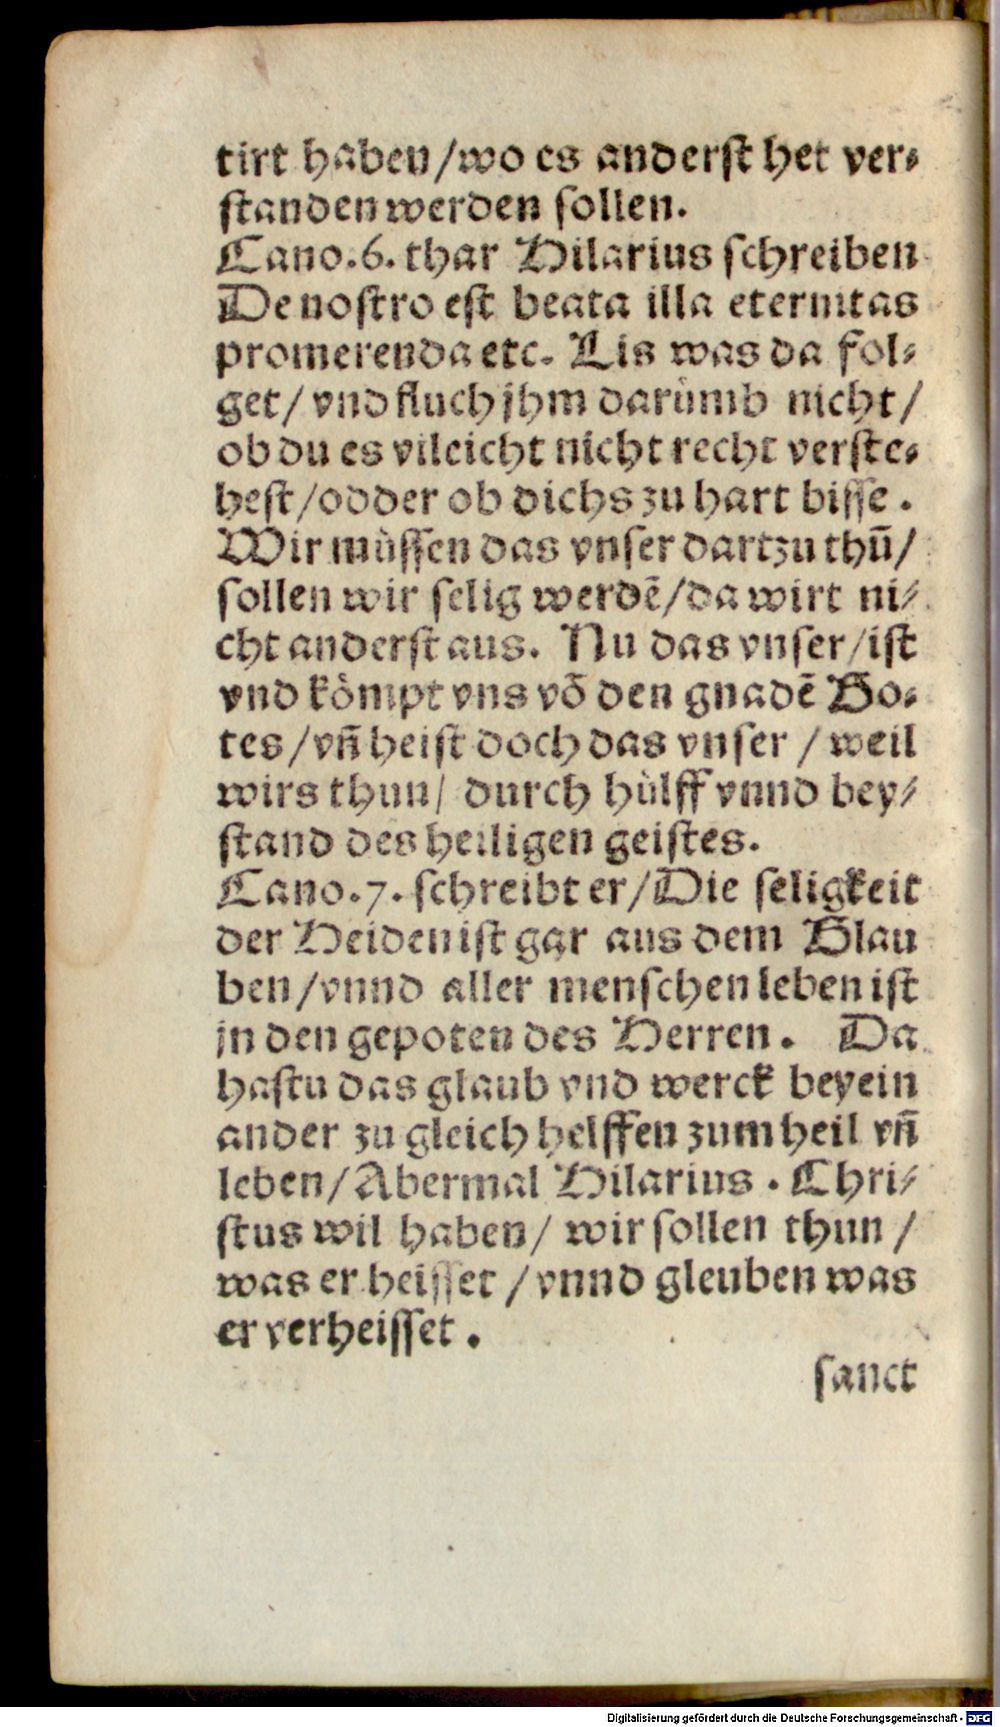 tirt haben/wo es anderst het ver⸗
standen werden sollen.
Cano.6. thar Hilarius schreiben
De nostro est beata illa eternitas
promerenda etc. Lis was da fol⸗
get/ vnd fluch jhm darůmb nicht/
ob du es vileicht nicht recht verste⸗
hest/odder ob dichs zu hart bisse.
Wir můssen das vnser dartzu thū/
sollen wir selig werdē/da wirt ni⸗
cht anderst aus. Nu das vnser/ist
vnd kömpt vns vō den gnadē Go⸗
tes/vn̄ heist doch das vnser / weil
wirs thun/ durch hůlff vnnd bey⸗
stand des heiligen geistes.
Cano.7. schreibt er/Die seligkeit
der Heiden ist gar aus dem Glau
ben/vnnd aller menschen leben ist
jn den gepoten des Herren. Da
hastu das glaub vnd werck beyein
ander zu gleich helffen zum heil vn̄
leben/Abermal Hilarius. Chri⸗
stus wil haben/ wir sollen thun /
was er heisset /vnnd gleuben was
er verheisset.
sanct
Digitalisierung gefördert durch die Deutsche Forschungsgemeinschaft - DFG